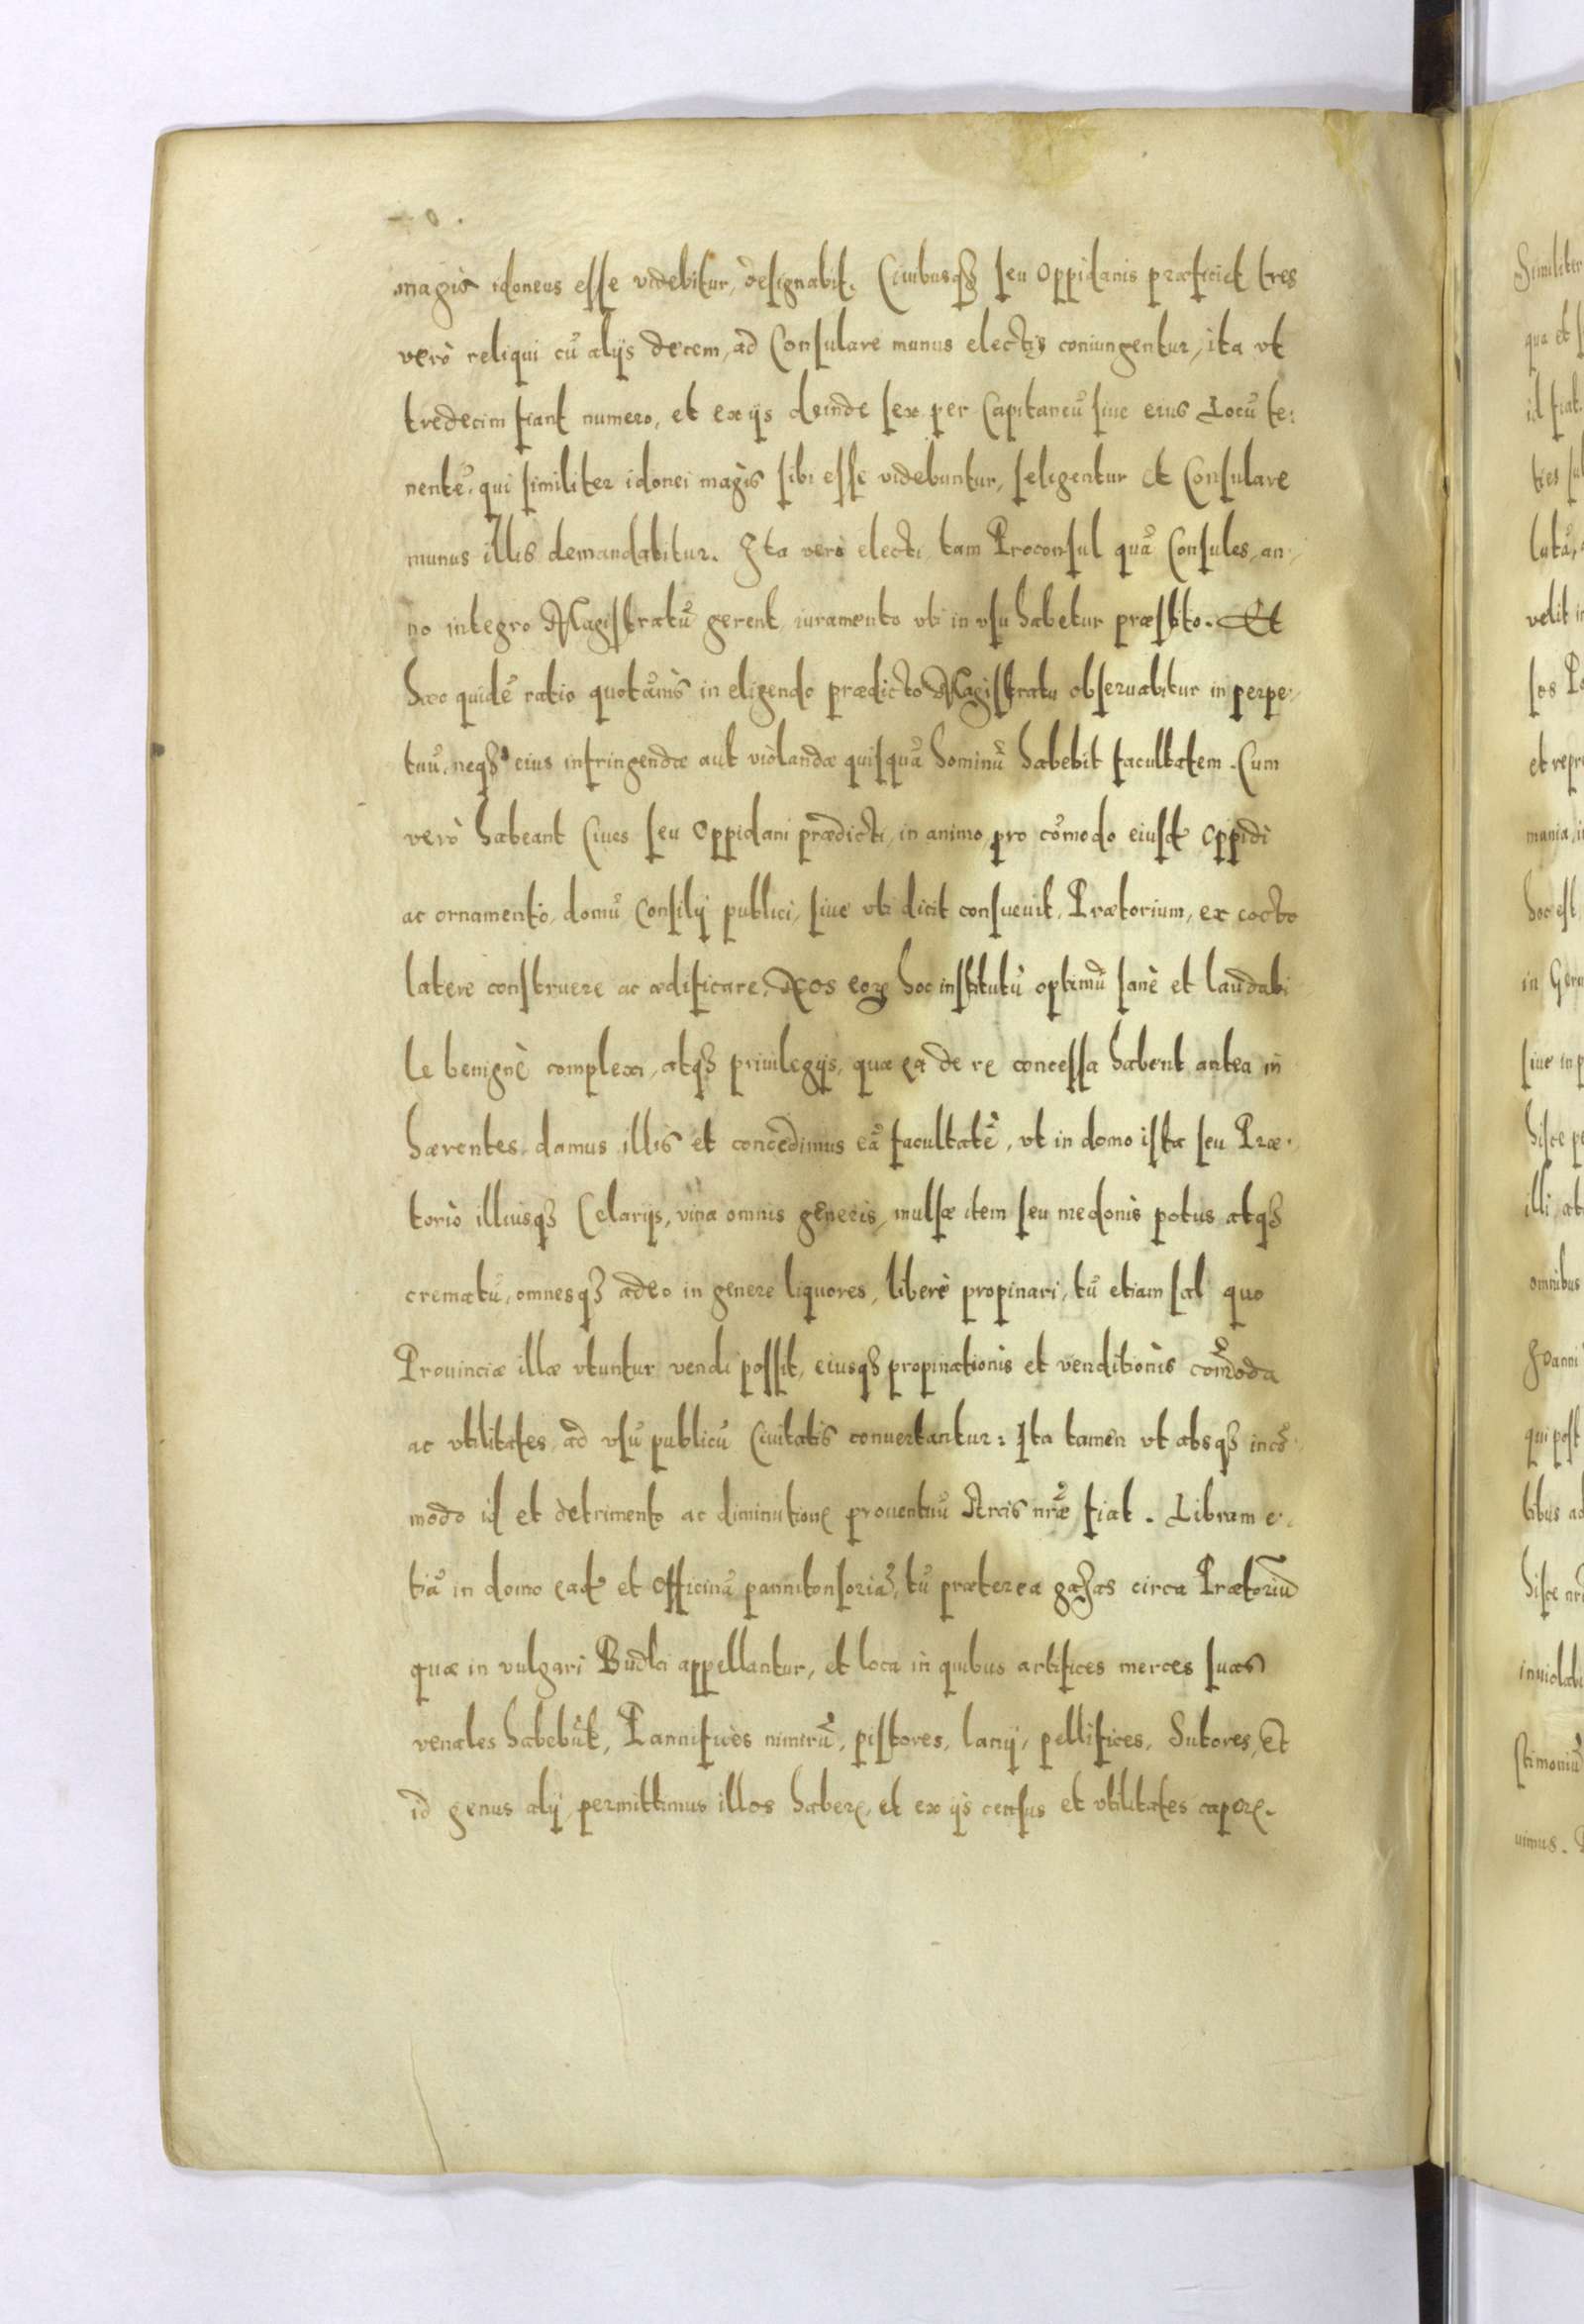 magis idoneus esse videbitur, designabit. Ciuibusq3 seu Oppidanis præficiet tres
verò reliqui cū alijs decem, ad Consulare munus electis coniungentur, ita vt
tredecim fiant numero, et ex ijs deinde sex per Capitaneū siue eius Locū te:
nentē, qui similiter idonei magis sibi esse videbuntur, seligentur et Consulare
munus illis demandabitur. Ita verò electi tam Proconsul quā Consules, an,
no integro Magistratū gerent, iuramento vti in vsu habetur præstito. Et
hæc quidē ratio quotānis in eligendo prædicto Magistratu obseruabitur in perpe,
tuū, neq3 eius infringendæ aut violandæ quisquā hominū habebit facultatem. Cum
verò habeant Ciues seu Oppidani prædicti, in animo, pro cōmodo eiusdē Oppidi
ac ornamento, domū Consilij publici, siue vti dicit consueuit, Prætorium, ex cocto
latere construere ac ædificare, Nos eoꝝ hoc institutū optimū sanè et laudabi
le benignè complexi, atq3 priuilegijs, quæ ea de re concessa habent antea in
hærentes, damus illis et concedimus eā facultatē, vt in domo ista seu Præ.
torio illiusq3 Celarijs, vina omnis generis, mulsæ item seu medonis potus atq3
crematū, omnesq3 adeo in genere liquores, liberè propinari, tū etiam sal quo
Prouinciæ illæ vtuntur vendi possit, eiusq3 propinationis et venditionis cōmoda
ac vtilitates, ad vsū publicū Ciuitatis conuertantur: Ita tamen vt absq3 incō.
modo id et detrimento ac diminutione prouentuū Arcis nr̄æ fiat. Libram e.
tiā in domo eadē et Officinā pannitonsoriā, tū præterea gazas circa Prætoriū
quæ in vulgari Budki appellantur, et loca in quibus artifices merces suas
venales habebūt, Pannifices nimirū, pistores, lanij, pellifices, Sutores, Et
id genus alij, permittimus illos habere, et ex ijs census et vtilitates capere.